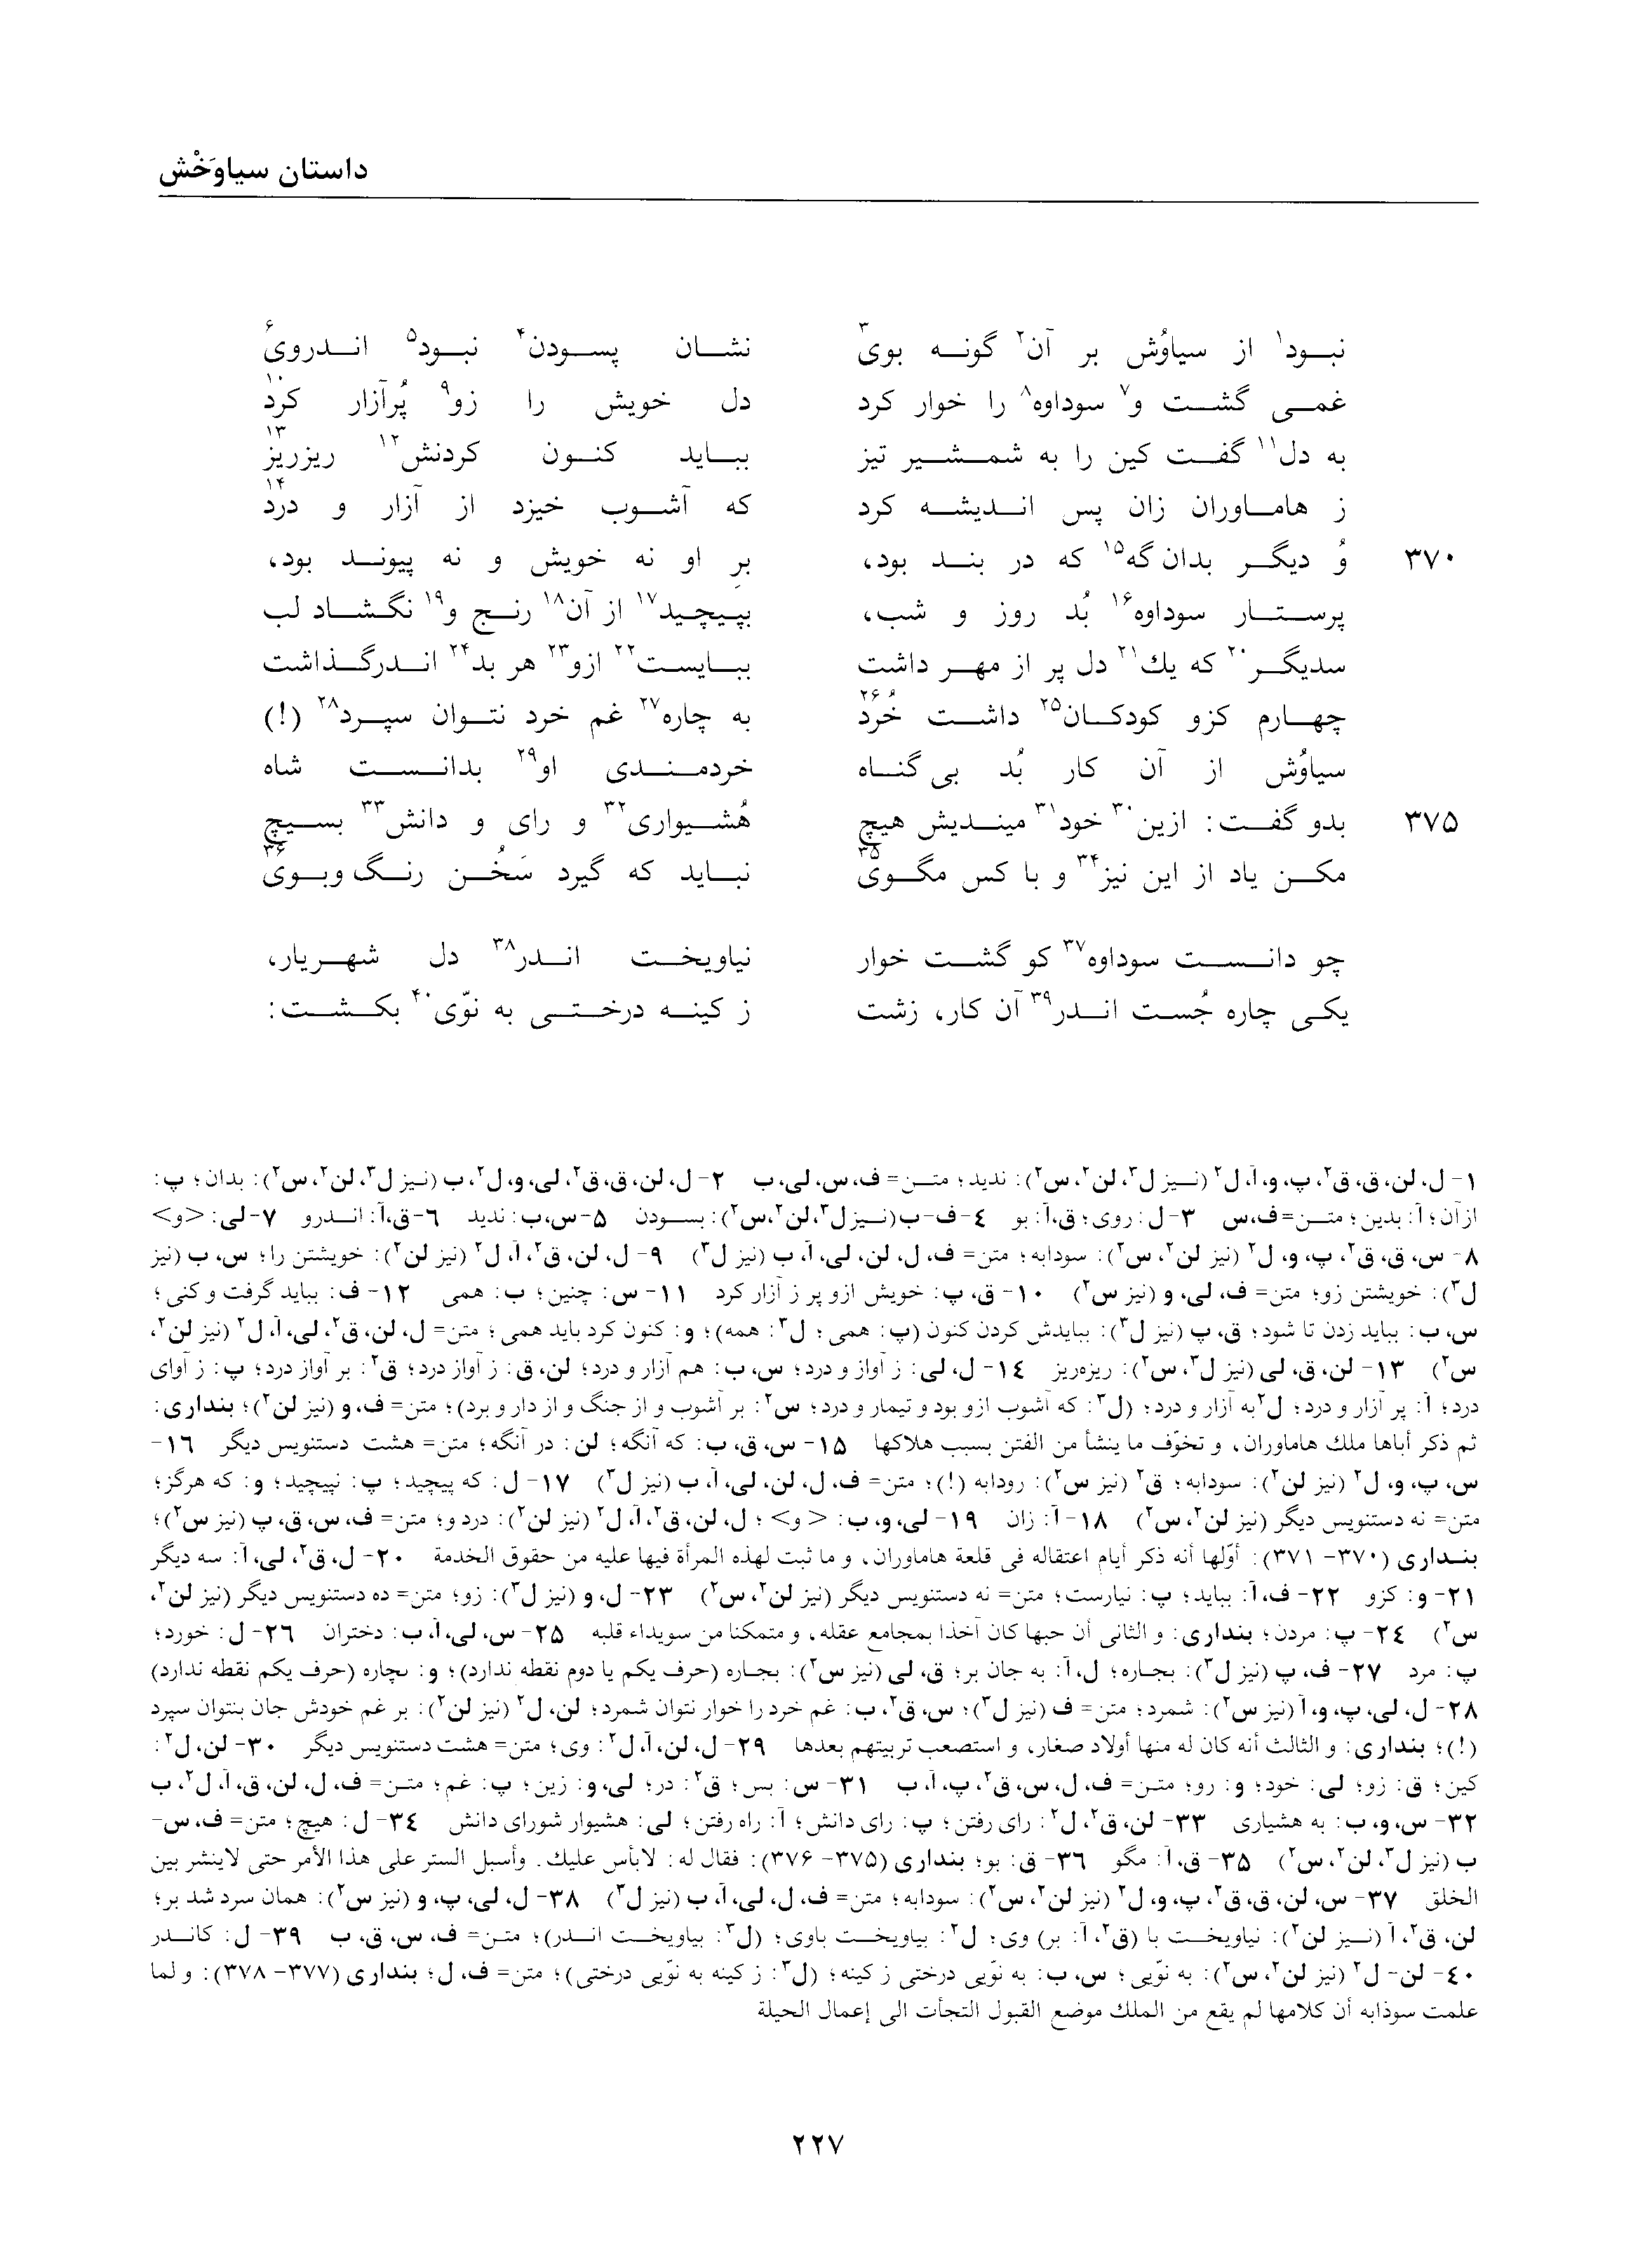 داستان سیاوَخْش
نبود۱ از سیاوُش بر آن۲ گونه بوی۳ نشان پسودن۴ نبود۵ اندروی۶
غمی گشت و۷ سوداوه۸ را خوار کرد دل خویش را زو۹ پُرآزار کرد۱۰
به دل۱۱ گفت کین را به شمشیر تیز بباید کنون کردنش۱۲ ریزریز۱۳
ز هاماوران زان پس اندیشه کرد که آشوب خیزد از آزار و درد۱۴
۳۷۰ وُ دیگر بدان‌گه۱۵ که در بند بود، برِ او نه خویش و نه پیوند بود،
پرستار سوداوه۱۶ بُد روز و شب، بپیچید۱۷ از آن۱۸ رنج و۱۹ نگشاد لب
سدیگر۲۰ که یك۲۱ دل پر از مهر داشت ببایست۲۲ ازو۲۳ هر بد۲۴ اندرگذاشت
چهارم کزو کودکان۲۵ داشت خُرد۲۶ به چاره۲۷ غم خرد نتوان سپرد۲۸ (!)
سیاوُش از آن کار بُد بی‌گناه خردمندی او۲۹ بدانست شاه
۳۷۵ بدو گفت: ازین۳۰ خود۳۱ میندیش هیچ هُشیواری۳۲ و رای و دانش۳۳ بسیچ
مکن یاد از این نیز۳۴ و با کس مگوی۳۵ نباید که گیرد سَخُن رنگ‌وبوی۳۶
چو دانست سوداوه۳۷ کو گشت خوار نیاویخت اندر۳۸ دل شهریار،
یکی چاره جُست اندر۳۹ آن کار، زشت ز کینه درختی به نوّی۴۰ بکشت:
۱- ل، لن، ق، ق۲، پ، و، آ، ل۲ (نیز ل۳، لن۲، س۲): ندید؛ متن= ف، س، لی، ب ۲- ل، لن، ق، ق۲، لی، و، ل۲، ب (نیز ل۳، لن۲، س۲): بدان؛ پ:
ازآن؛ آ: بدین؛ متن= ف، س ۳- ل: روی؛ ق، آ: بو ۴- ف-ب (نیز ل۳، لن۲، س۲): بسودن ۵- س، ب: ندید ۶- ق، آ: اندرو ۷- لی: <و>
۸- س، ق، ق۲، پ، و، ل۲ (نیز لن۲، س۲): سودابه؛ متن= ف، ل، لن، لی، آ، ب (نیز ل۳) ۹- ل، لن، ق۲، آ، ل۲ (نیز لن۲): خویشتن را؛ س، ب (نیز
ل۳): خویشتن زو؛ متن= ف، لی، و (نیز س۲) ۱۰- ق، پ: خویش ازو پر ز آزار کرد ۱۱- س: چنین؛ ب: همی ۱۲- ف: بباید گرفت و کنی؛
س، ب: بباید زدن تا شود؛ ق، پ (نیز ل۳): ببایدش کردن کنون (پ: همی؛ ل۳: همه)؛ و: کنون کرد باید همی؛ متن= ل، لن، ق۲، لی، آ، ل۲ (نیز لن۲،
س۲) ۱۳- لن، ق، لی (نیز ل۳، س۲): ریزه‌ریز ۱۴- ل، لی: ز آواز و درد؛ س، ب: هم آزار و درد؛ لن، ق: ز آواز درد؛ ق۲: بر آواز درد؛ پ: ز آوای
درد؛ آ: پر آزار و درد؛ ل۲ به آزار و درد؛ (ل۳: که آشوب ازو بود و تیمار و درد؛ س۲: بر آشوب و از جنگ و از دار و برد)؛ متن= ف، و (نیز لن۲)؛ بنداری:
ثم ذکر أباها ملك هاماوران، و تخوّف ما ینشأ من الفتن بسبب هلاکها ۱۵- س، ق، ب: که آنگه؛ لن: در آنگه؛ متن= هشت دستنویس دیگر ۱۶-
س، پ، و، ل۲ (نیز لن۲): سودابه؛ ق۲ (نیز س۲): رودابه (!)؛ متن= ف، ل، لن، لی، آ، ب (نیز ل۳) ۱۷- ل: که پیچید؛ پ: نپیچید؛ و: که هرگز؛
متن= نه دستنویس دیگر (نیز لن۲، س۲) ۱۸- آ: زان ۱۹- لی، و، ب: <و>؛ ل، لن، ق۲، آ، ل۲ (نیز لن۲): درد و؛ متن= ف، س، ق، پ (نیز س۲)؛
بنداری (۳۷۰- ۳۷۱): أوّلها أنه ذکر أیام اعتقاله فی قلعة هاماوران، و ما ثبت لهذه المرأة فیها علیه من حقوق الخدمة ۲۰- ل، ق۲، لی، آ: سه دیگر
۲۱- و: کزو ۲۲- ف، آ: بباید؛ پ: نیارست؛ متن= نه دستنویس دیگر (نیز لن۲، س۲) ۲۳- ل، و (نیز ل۳): زو؛ متن= ده دستنویس دیگر (نیز لن۲،
س۲) ۲۴- پ: مردن؛ بنداری: و الثانی أن حبها کان آخذا بمجامع عقله، و متمکنا من سویداء قلبه ۲۵- س، لی، آ، ب: دختران ۲۶- ل: خورد؛
پ: مرد ۲۷- ف، پ (نیز ل۳): بجاره؛ ل، آ: به جان بر؛ ق، لی (نیز س۲): بجاره (حرف یکم یا دوم نقطه ندارد)؛ و: بچاره (حرف یکم نقطه ندارد)
۲۸- ل، لی، پ، و، آ (نیز س۲): شمرد؛ متن= ف (نیز ل۳)؛ س، ق۲، ب: غم خرد را خوار نتوان شمرد؛ لن، ل۲ (نیز لن۲): بر غم خودش جان بنتوان سپرد
(!)؛ بنداری: و الثالث أنه کان له منها أولاد صغار، و استصعب تربیتهم بعدها ۲۹- ل، لن، آ، ل۲: وی؛ متن= هشت دستنویس دیگر ۳۰- لن، ل۲:
کین؛ ق: زو؛ لی: خود؛ و: رو؛ متن= ف، ل، س، ق۲، پ، آ، ب ۳۱- س: بس؛ ق۲: در؛ لی، و: زین؛ پ: غم؛ متن= ف، ل، لن، ق، آ، ل۲، ب
۳۲- س، و، ب: به هشیاری ۳۳- لن، ق۲، ل۲: رای رفتن؛ پ: رای دانش؛ آ: راه رفتن؛ لی: هشیوار شورای دانش ۳۴- ل: هیچ؛ متن= ف، س-
ب (نیز ل۳، لن۲، س۲) ۳۵- ق، آ: مگو ۳۶- ق: بو؛ بنداری (۳۷۵- ۳۷۶): فقال له: لابأس علیك. وأسبل الستر علی هذا الأمر حتی لاینشر بین
الخلق ۳۷- س، لن، ق، ق۲، پ، و، ل۲ (نیز لن۲، س۲): سودابه؛ متن= ف، ل، لی، آ، ب (نیز ل۳) ۳۸- ل، لی، پ، و (نیز س۲): همان سرد شد بر؛
لن، ق۲، آ (نیز لن۲): نیاویخت با (ق۲، آ: بر) وی؛ ل۲: بیاویخت باوی؛ (ل۳: بیاویخت اندر)؛ متن= ف، س، ق، ب ۳۹- ل: کاندر
۴۰- لن- ل۲ (نیز لن۲، س۲): به نوّیی؛ س، ب: به نوّیی درختی ز کینه؛ (ل۳: ز کینه به نوّیی درختی)؛ متن= ف، ل؛ بنداری (۳۷۷- ۳۷۸): و لما
علمت سوذابه أن کلامها لم یقع من الملك موضع القبول التجأت الی إعمال الحیلة
۲۲۷